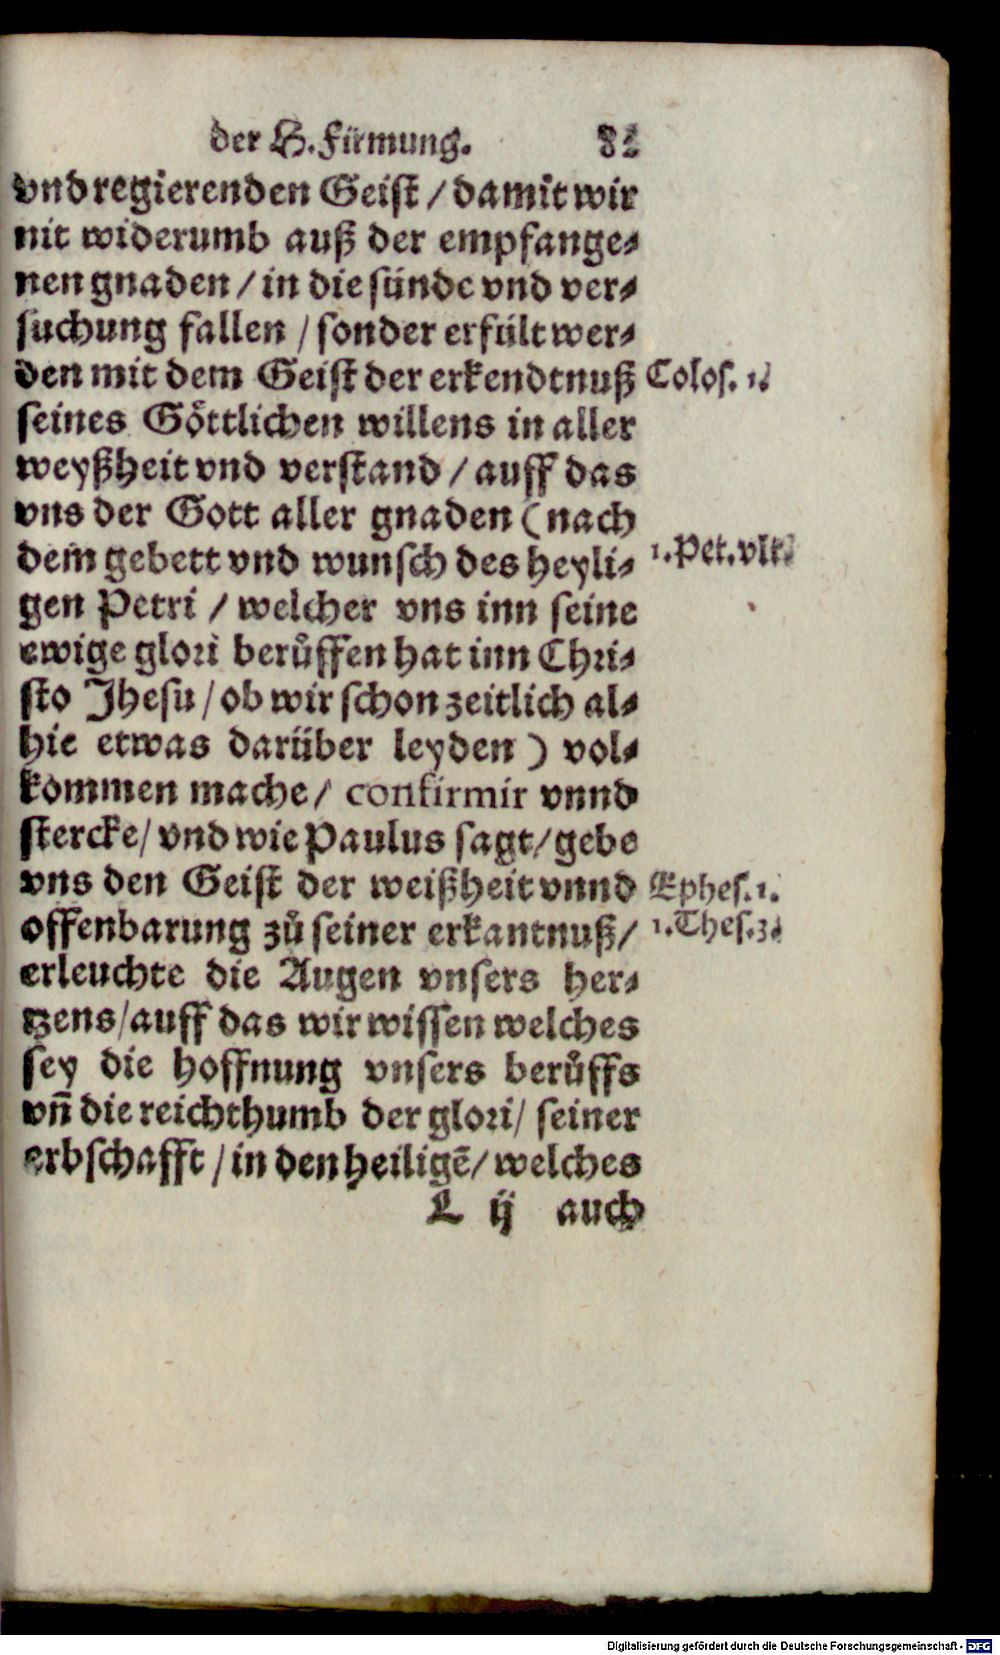 der H. Firmung. 82
vnd regierenden Geist / damit wir
nit widerumb auß der empfange-
nen gnaden / in die sünde vnd ver-
suchung fallen / sonder erfült wer-
den mit dem Geist der erkendtnuß
Colos. 1.
seines Göttlichen willens in aller
weyßheit vnd verstand / auff das
vns der Gott aller gnaden (nach
dem gebett vnd wunsch des heyli-
1. Pet. vlt.
gen Petri / welcher vns inn seine
ewige glori berůffen hat inn Chri-
sto Jhesu / ob wir schon zeitlich al-
hie etwas darüber leyden) vol-
kommen mache / confirmir vnnd
stercke / vnd wie Paulus sagt / gebe
vns den Geist der weißheit vnnd
Ephes. 1.
offenbarung zů seiner erkantnuß /
1. Thes. 3.
erleuchte die Augen vnsers her-
tzens / auff das wir wissen welches
sey die hoffnung vnsers berůffs
vñ die reichthumb der glori / seiner
erbschafft / in den heiligẽ / welches
L ij auch
Digitalisierung gefördert durch die Deutsche Forschungsgemeinschaft - DFG